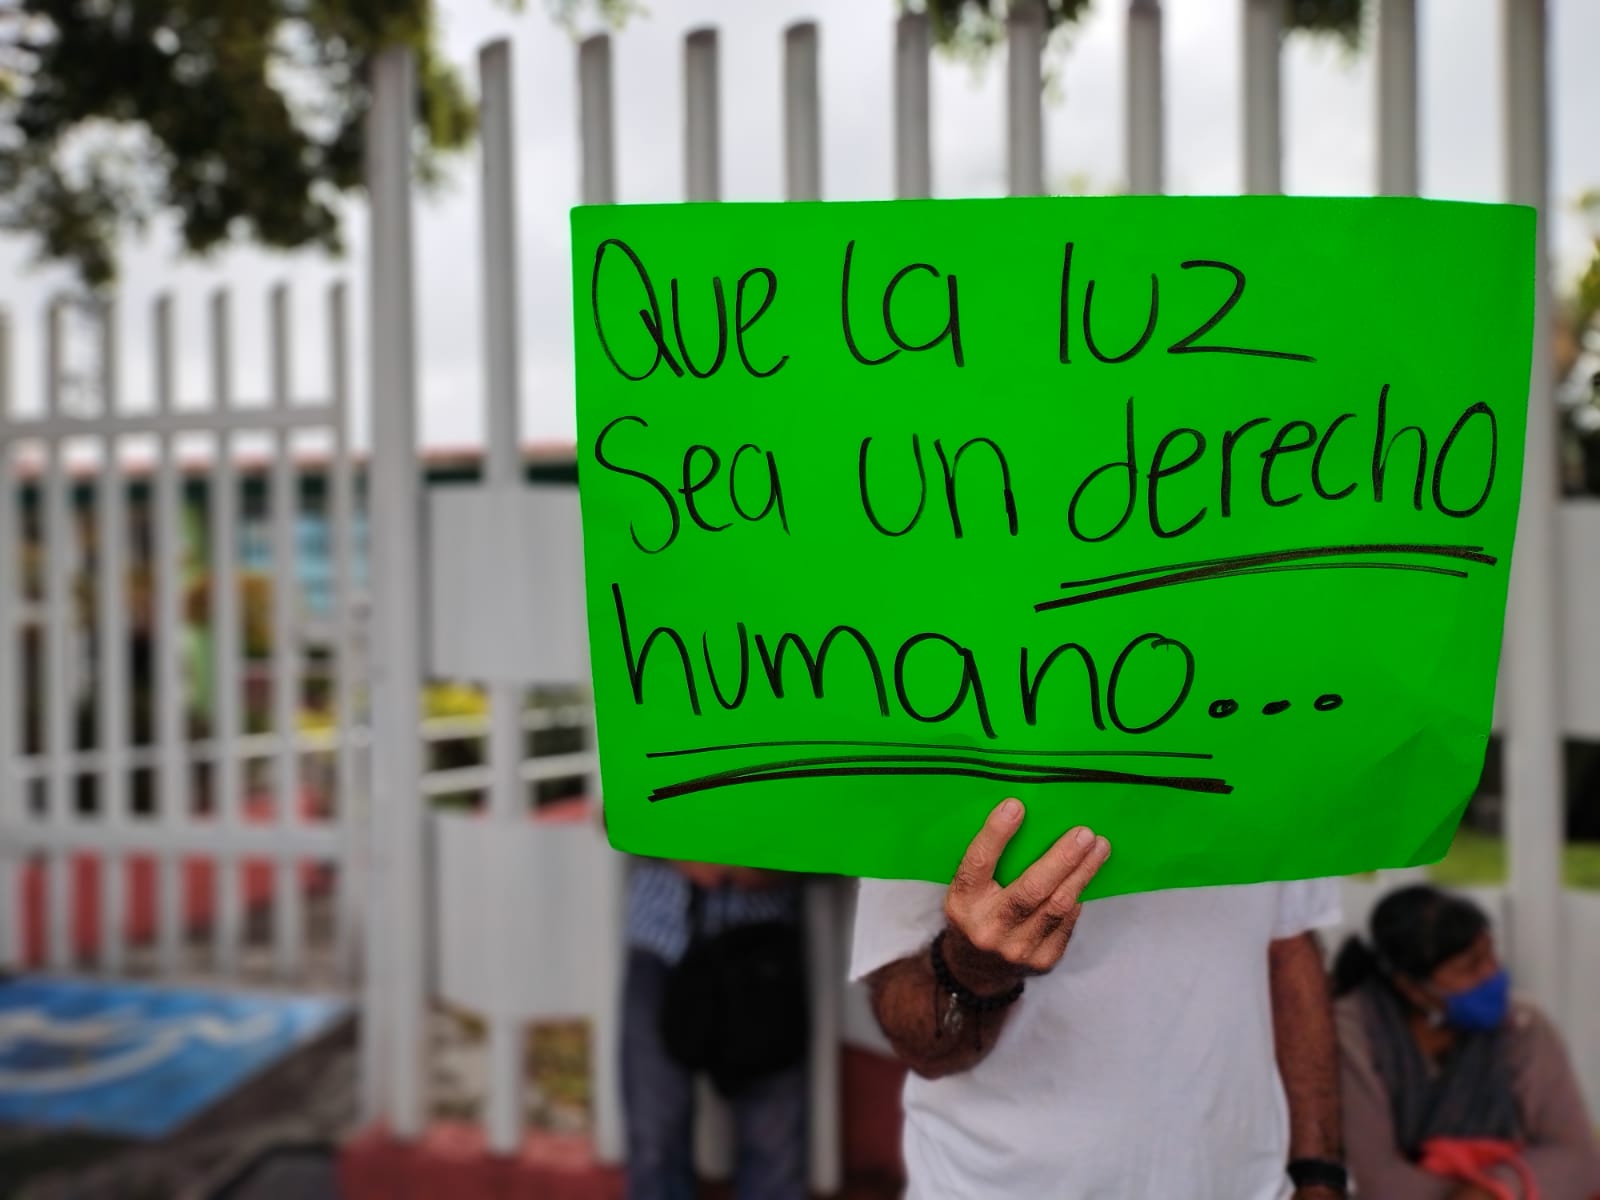 Que la luz
Sea un derecho
humano...